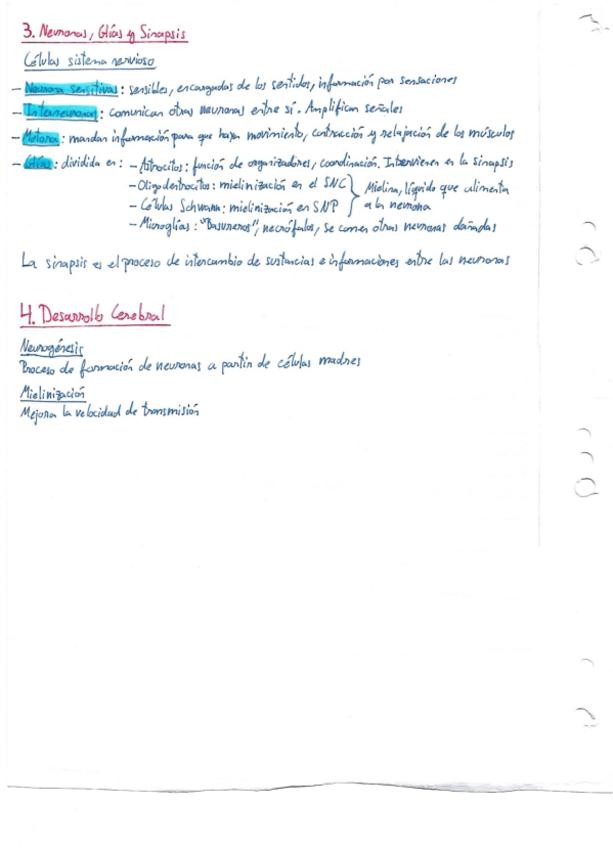 3. Neuronas, Glías y Sinapsis
Células sistema nervioso
- Neurona sensitivas: sensibles, encargadas de los sentidos, información por sensaciones
- Interneuronas: comunican otras neuronas entre sí. Amplifican señales
- Motoras: mandan información para que haya movimiento, contracción y relajación de los músculos
- Glías: dividida en: - Astrocitos: función de organizadores, coordinación. Intervienen en la sinapsis
- Oligodentrocitos: mielinización en el SNC
- Células Schwann: mielinización en SNP
} Mielina, líquido que alimenta
a la neurona
- Microglías: "Basureros", necrófalos, se comen otras neuronas dañadas
La sinapsis es el proceso de intercambio de sustancias e informaciones entre las neuronas
4. Desarrollo Cerebral
Neurogénesis
Proceso de formación de neuronas a partir de células madres
Mielinización
Mejora la velocidad de transmisión